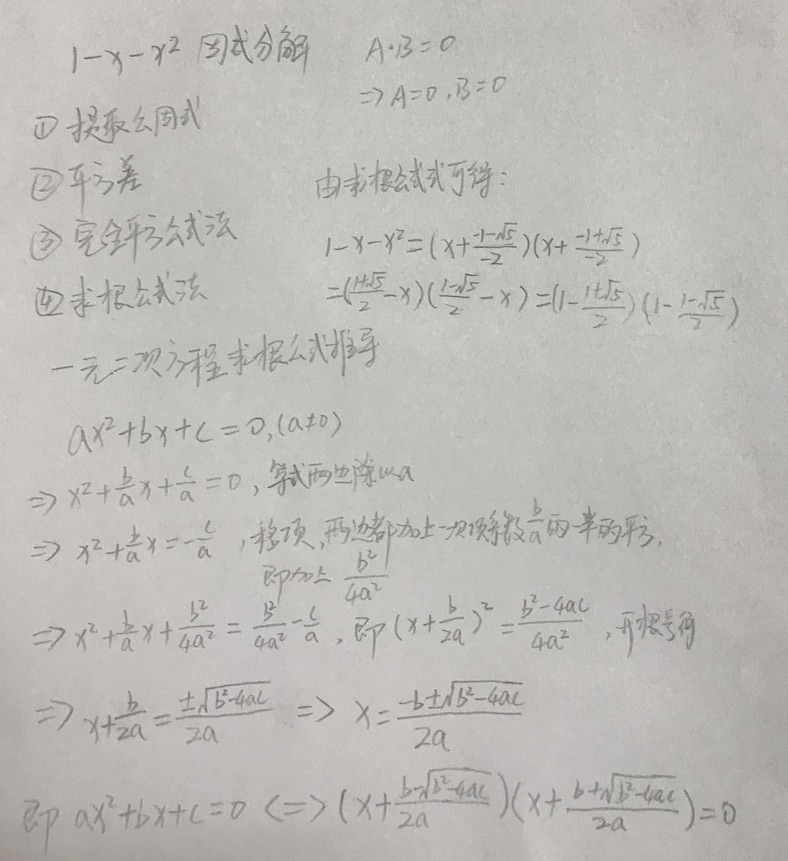 1-x-x² 因式分解
A·B=0
⇒A=0,B=0
① 提取公因式
② 平方差
③ 完全平方公式法
④ 求根公式法
由求根公式式可得:
1-x-x²=(x+\frac{-1-√5}{-2})(x+\frac{-1+√5}{-2})
=(\frac{1+√5}{2}-x)(\frac{1-√5}{2}-x)=(1-\frac{1+√5}{2})(1-\frac{1-√5}{2})
一元二次方程求根公式推导
ax²+bx+c=0,(a≠0)
⇒ x²+\frac{b}{a}x+\frac{c}{a}=0, 等式两边除以a
⇒ x²+\frac{b}{a}x=-\frac{c}{a}, 移项,两边都加上一次项系数\frac{b}{a}的一半的平方,
即加上 \frac{b²}{4a²}
⇒ x²+\frac{b}{a}x+\frac{b²}{4a²}=\frac{b²}{4a²}-\frac{c}{a}, 即(x+\frac{b}{2a})²=\frac{b²-4ac}{4a²}, 开根号得
⇒ x+\frac{b}{2a}=\frac{±√(b²-4ac)}{2a} ⇒ x=\frac{-b±√(b²-4ac)}{2a}
即 ax²+bx+c=0 <=> (x+\frac{b-√(b²-4ac)}{2a})(x+\frac{b+√(b²-4ac)}{2a})=0